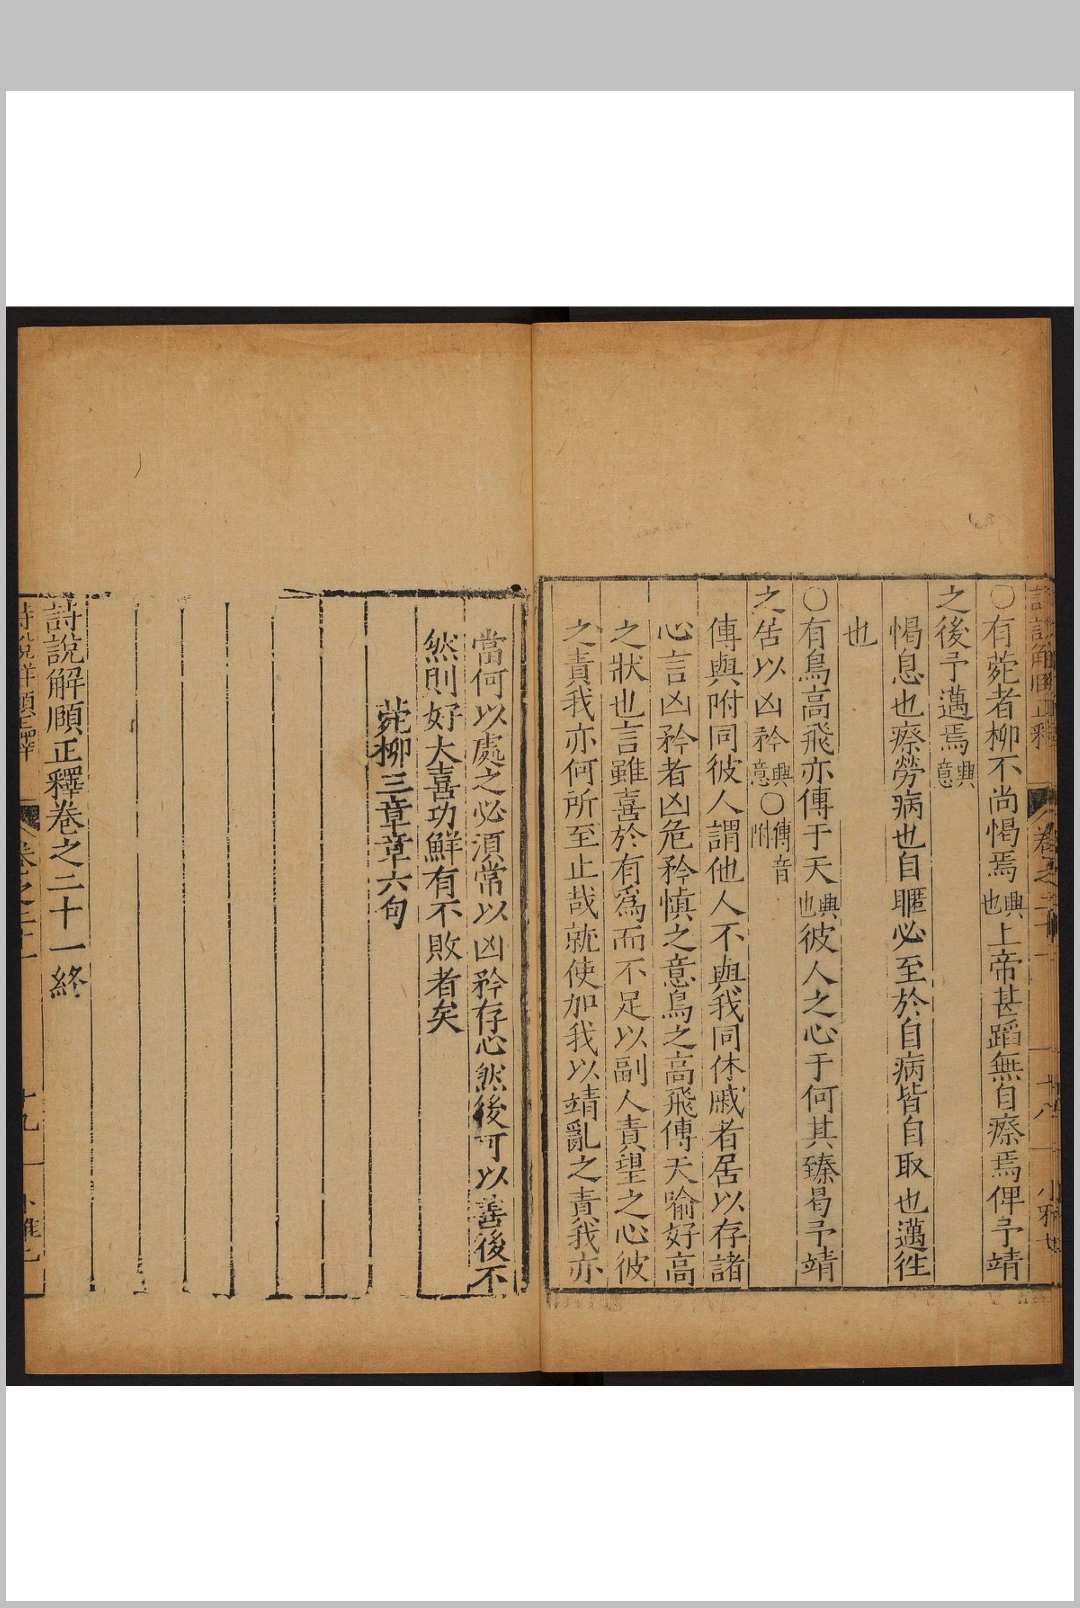 ○有菀者柳不尚愒焉興也上帝甚蹈無自瘵焉俾予靖
之後予邁焉興意
愒息也瘵勞病也自暱必至於自病皆自取也邁徃
也
○有鳥高飛亦傳于天興也彼人之心于何其臻曷予靖
之居以凶矜興意○傳音附
傳與附同彼人謂他人不與我同休戚者居以存諸
心言凶矜者凶危矜慎之意鳥之高飛傳天喻好高
之狀也言雖喜於有爲而不足以副人責望之心彼
之責我亦何所至止哉就使加我以靖亂之責我亦
當何以處之必須常以凶矜存心然後可以善後不
然則好大喜功鮮有不敗者矣
菀柳三章章六句
詩說解頤正釋卷之二十一終
十九